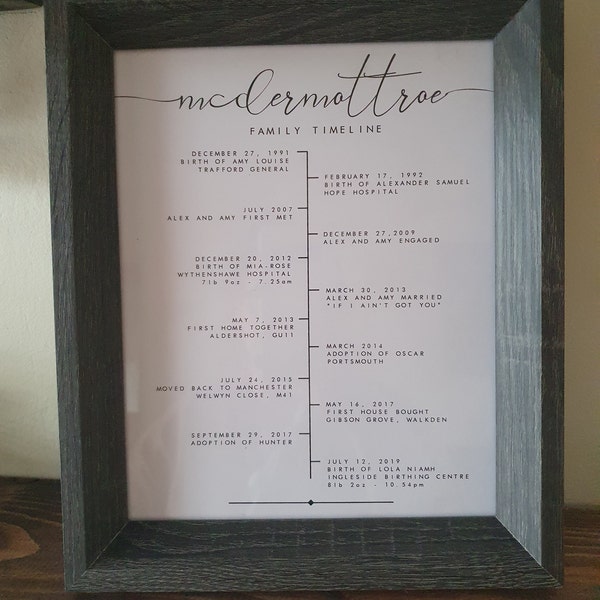 mcdermottroe
FAMILY TIMELINE
DECEMBER 27, 1991
BIRTH OF AMY LOUISE
TRAFFORD GENERAL
FEBRUARY 17, 1992
BIRTH OF ALEXANDER SAMUEL
HOPE HOSPITAL
JULY 2007
ALEX AND AMY FIRST MET
DECEMBER 27,2009
ALEX AND AMY ENGAGED
DECEMBER 20, 2012
BIRTH OF MIA-ROSE
WYTHENSHAWE HOSPITAL
7lb 9oz - 7.25am
MARCH 30, 2013
ALEX AND AMY MARRIED
"IF I AIN'T GOT YOU"
MAY 7, 2013
FIRST HOME TOGETHER
ALDERSHOT, GU11
MARCH 2014
ADOPTION OF OSCAR
PORTSMOUTH
JULY 24, 2015
MOVED BACK TO MANCHESTER
WELWYN CLOSE, M41
MAY 16, 2017
FIRST HOUSE BOUGHT
GIBSON GROVE, WALKDEN
SEPTEMBER 29, 2017
ADOPTION OF HUNTER
JULY 12, 2019
BIRTH OF LOLA NIAMH
INGLESIDE BIRTHING CENTRE
8lb 2oz - 10.54pm